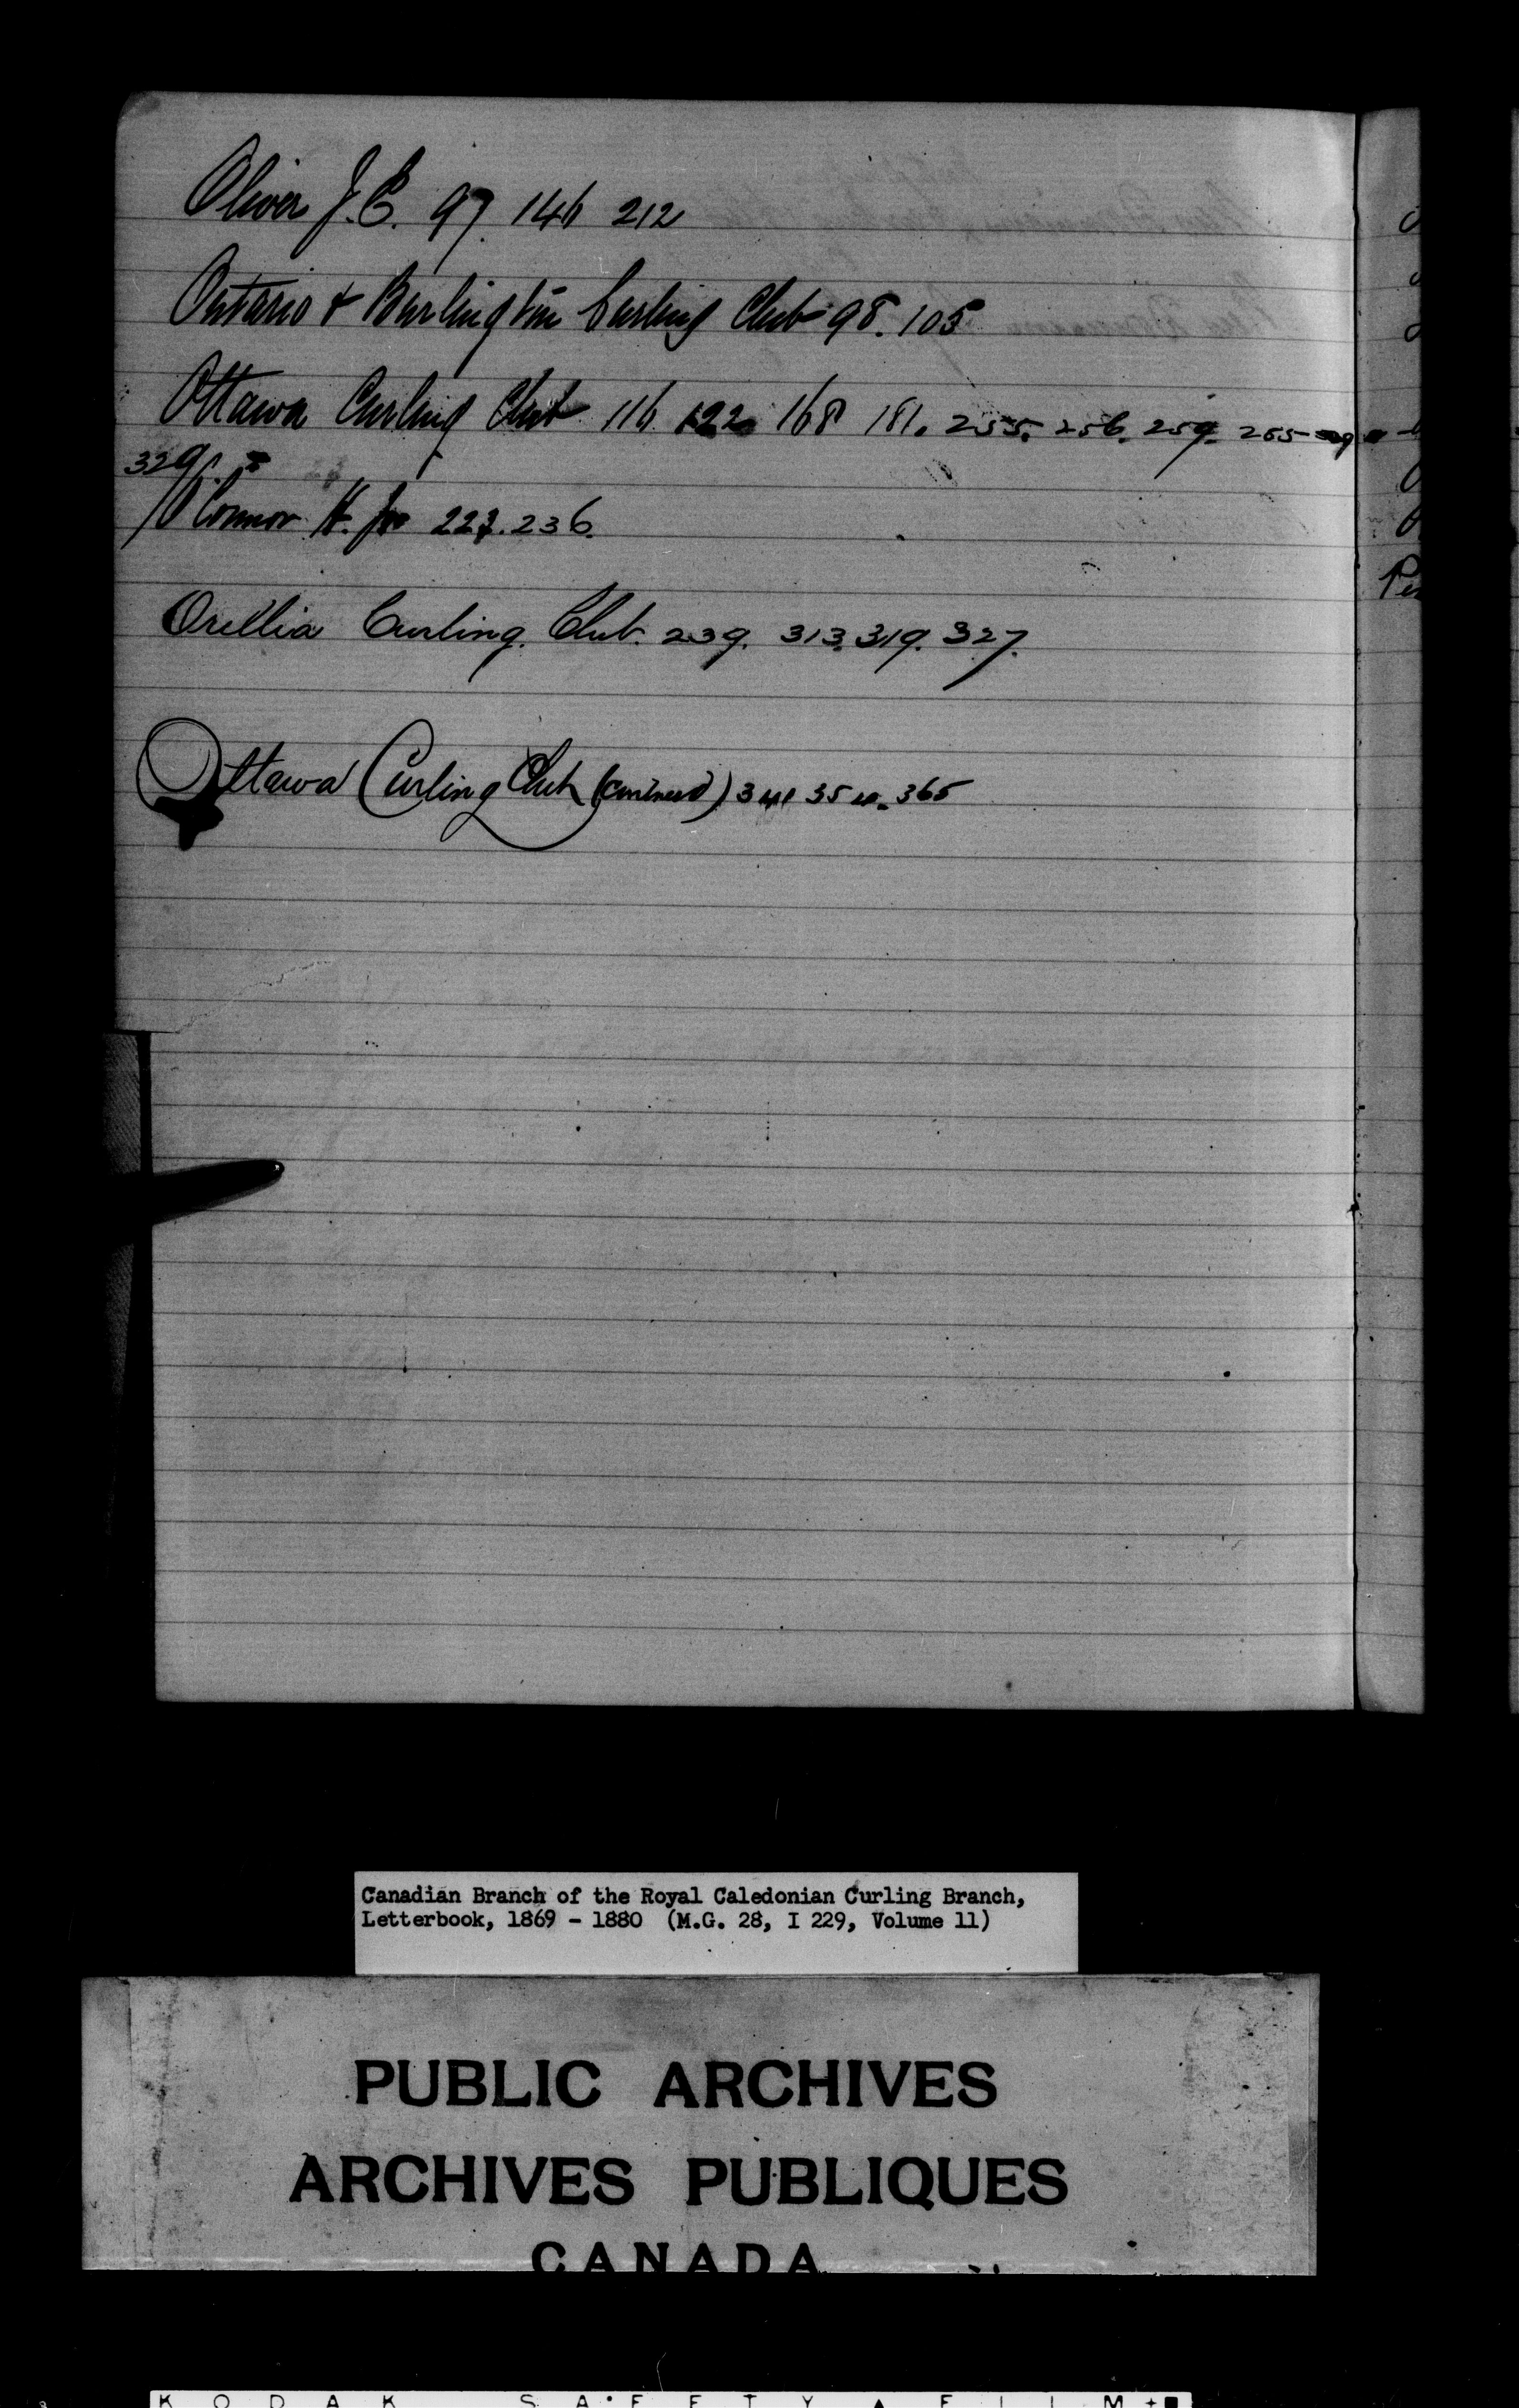 Oliver J.E. 97. 146 212
Ontario & Burlington Curling Club 98. 105
Ottawa Curling Club 116 122 168 181. 255. 256. 259. 265
329.
O'Connor H. 223. 236.
Orillia Curling. Club. 239. 313. 319. 327.
Ottawa Curling Club (continued) 341 354. 365
Canadian Branch of the Royal Caledonian Curling Branch,
Letterbook, 1869 - 1880 (M.G. 28, I 229, Volume 11)
PUBLIC ARCHIVES
ARCHIVES PUBLIQUES
CANADA
KODAK SAFETY FILM